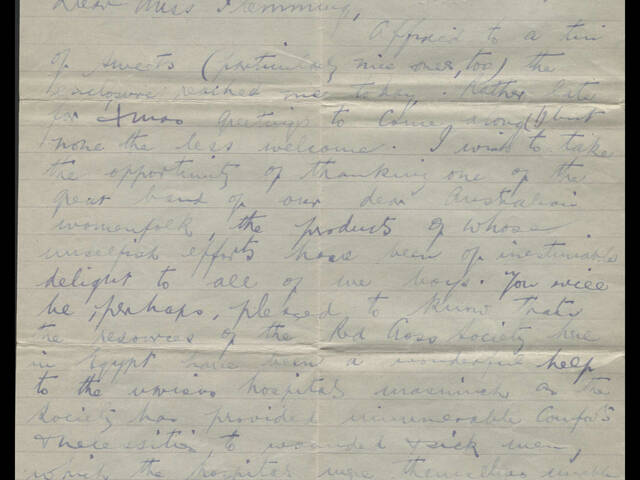 Dear Miss Flemming,
Affixed to a tin
of sweets (particularly nice ones, too) the
enclosure reached me today. Rather late
for Xmas greetings to come along (!) but
none the less welcome. I wish to take
the opportunity of thanking one of the
great band of our dear Australian
womenfolk, the products of whose
unselfish efforts have been of inestimable
delight to all of we boys. You will
be, perhaps, pleased to know that
the resources of the Red Cross Society here
in Egypt have been a wonderful help
to the various hospitals inasmuch as the
Society has provided innumerable comforts
& necessities to wounded & sick men,
which the hospitals were themselves unable